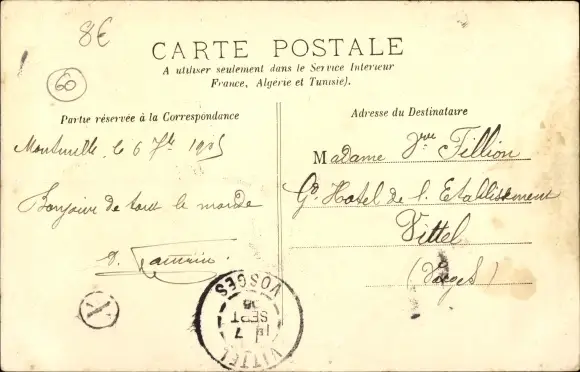 8€
60
CARTE POSTALE
A utiliser seulement dans le Service Intérieur
France, Algérie et Tunisie).
Partie réservée à la Correspondance
Adresse du Destinataire
le 6 7bre
Bonjour de tout le monde
Madame Jne Fillion
Gd Hotel de l'Etablissement
Vittel
(Vosges)
VITTEL
7
SEPT
VOSGES